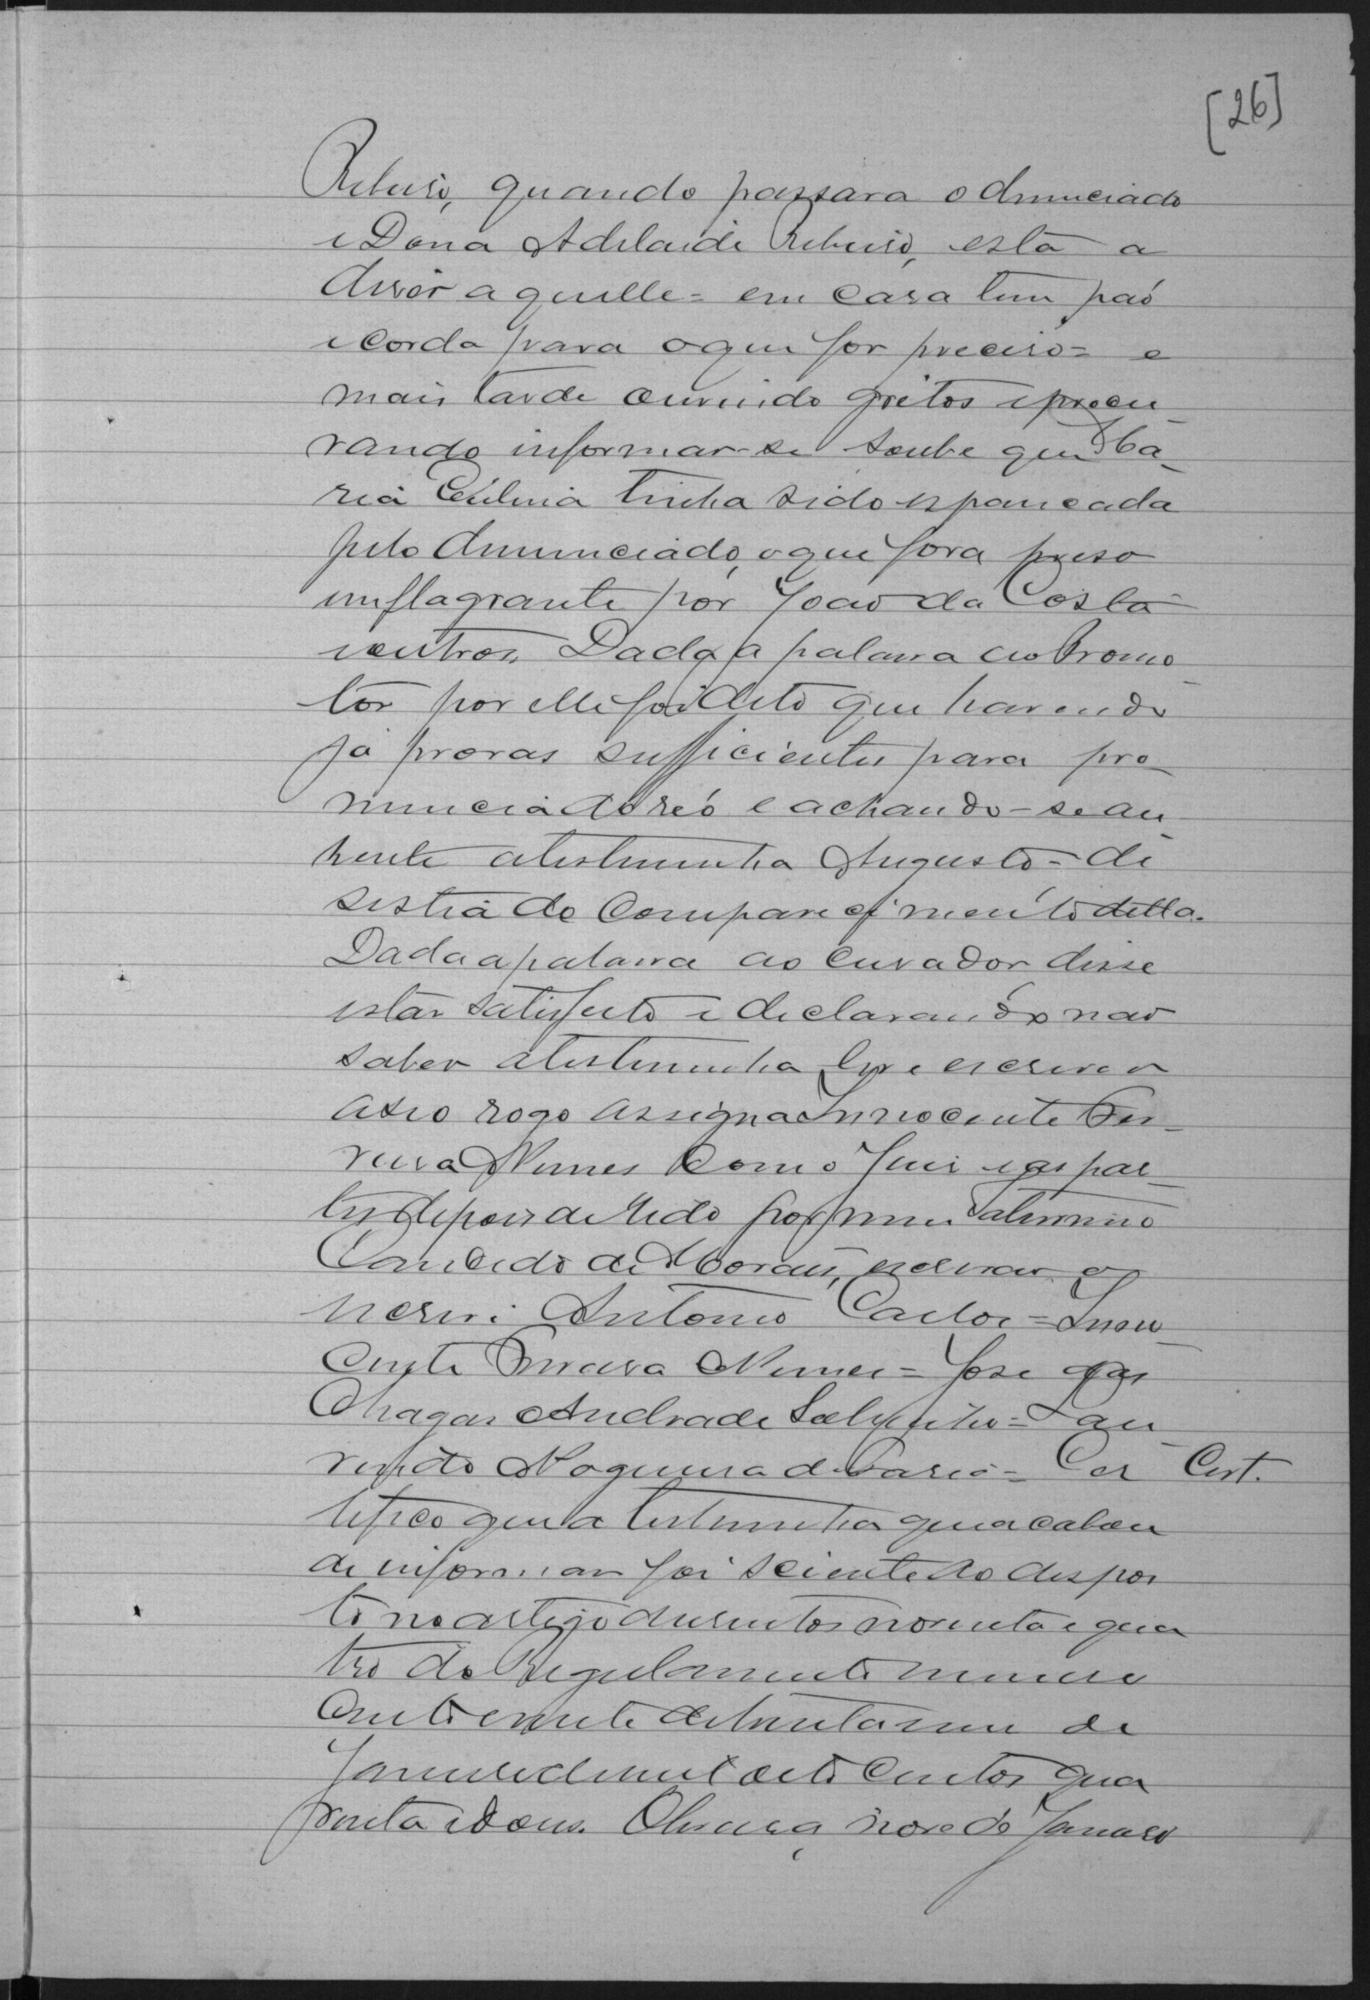 [26]
Ribeiro, quando passara o denunciado
e Dona Adelaide Ribeiro, esta a
diser aquelle = em casa tem páo
e corda para o que for preciso = e
mais tarde ouvindo gritos e procu-
rando informar-se soube que Ma-
ria Cecilia tinha sido espancada
pelo denunciado, o que fora preso
em flagrante por João da Costa
e outros. Dada a palavra ao Promo-
tor por elle foi dito que havendo
já provas sufficientes para pro-
nuncia do réo e achando-se au-
sente a testemunha Augusto = de
sestia do comparecimento della.
Dada a palavra ao Curador disse
estar satisfeito e declarando não
saber a testemunha ler e escrever
a seo rogo assigna Innocente Fer-
reira Nunes com o Juis e as par-
tes depois de lido por mim Saturnino
Candido de Moraes, escrivão o
escrivi Antonio Carlos = Inno-
cente Ferreira Nunes = José das
Chagas Andrade Sobrinho = Lau-
rindo Nogueira de Faria = Cer Cert.
tifico que a testemunha que acabou
de informar foi sciente do dispos
to no artigo dusentos noventa e qua
tro do Regulamento numero
cento e vinte de trinta e um de
Janeiro de mil oito centos qua
renta e dous. Oliveira, nove de Janeiro